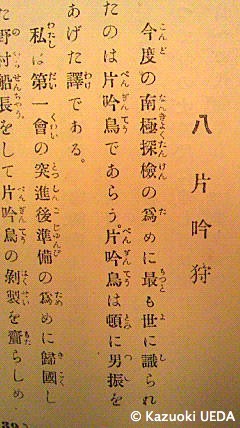 八 片吟狩
今度の南極探檢の爲めに最も世に識られ
たのは片吟鳥であらう。片吟鳥は頓に男振を
あげた譯である。
私は第一會の突進後準備の爲めに歸國し
た野村船長をして片吟鳥の剥製を齎らしめ
© Kazuoki UEDA